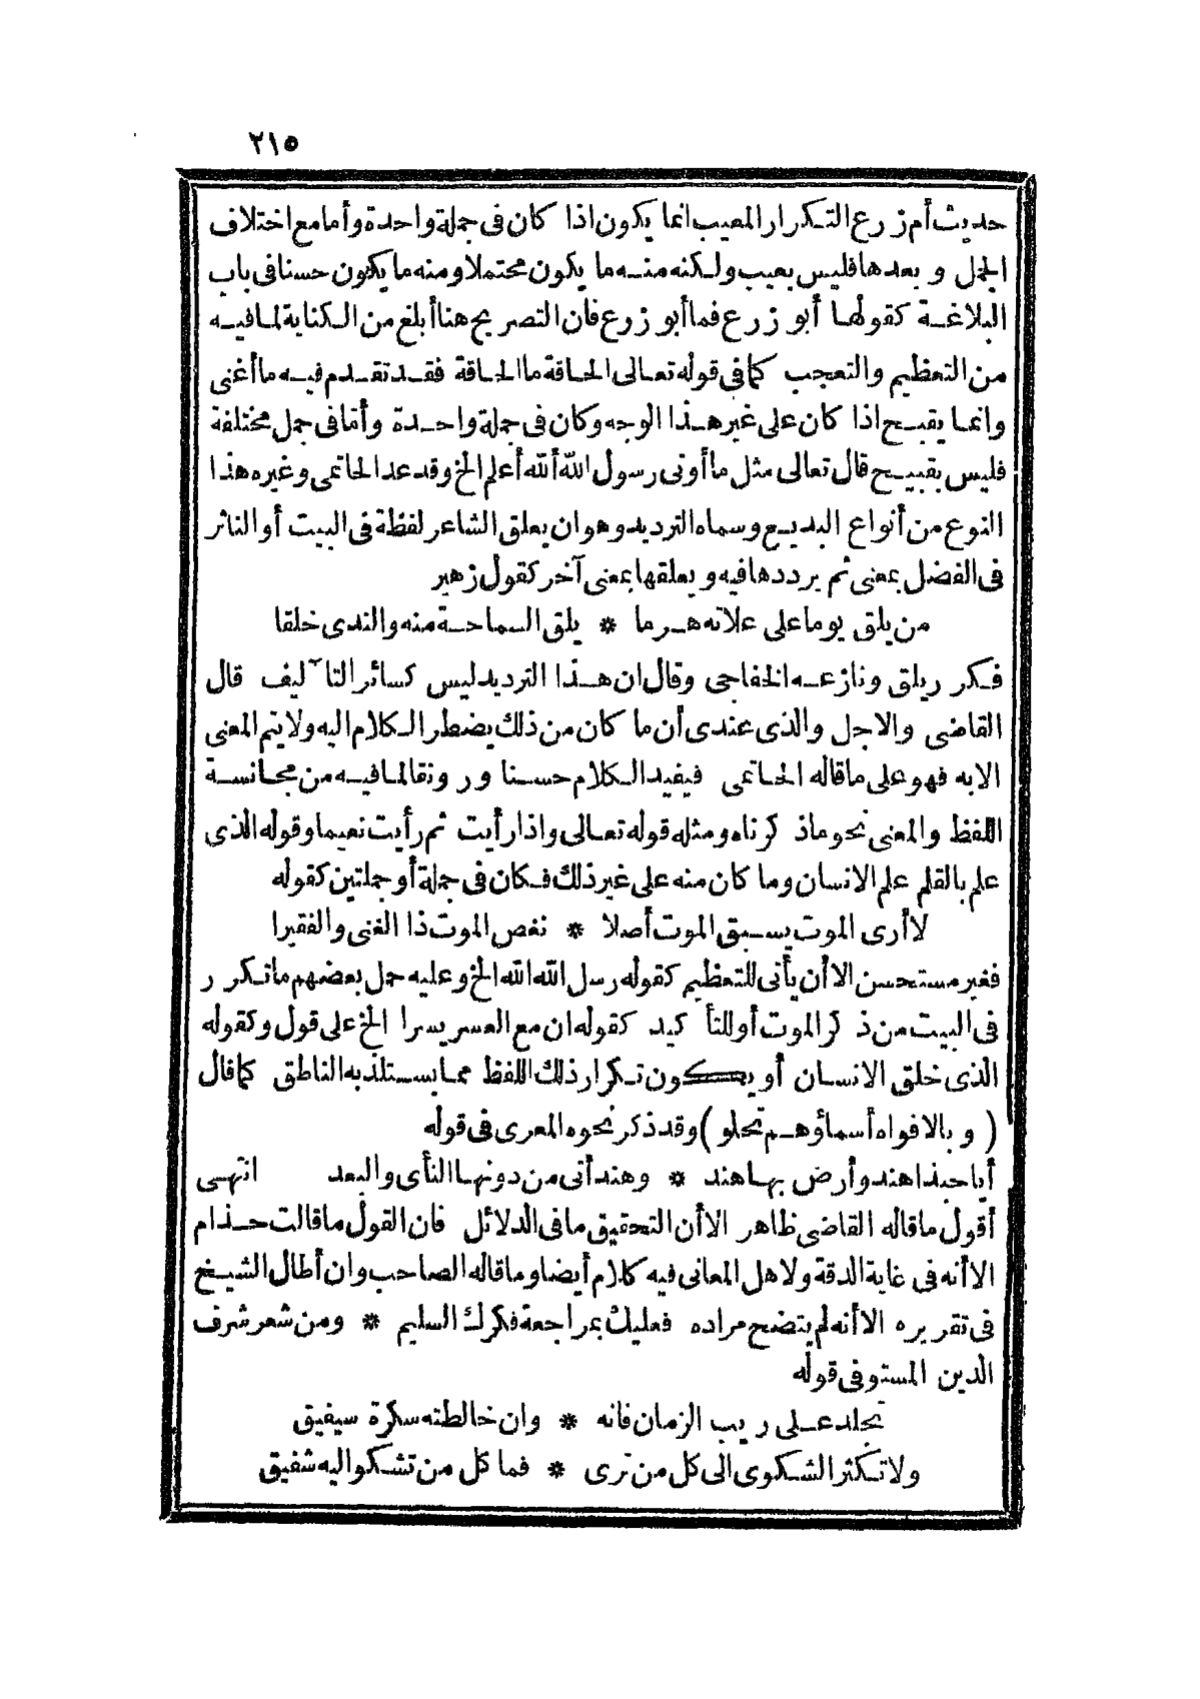 ٢١٥
حديث أم زرع التكرار المعيب انما يكون اذا كان فى جملة واحدة وأما مع اختلاف
الجمل وبعدها فليس بعيب ولكنه منه ما يكون محتملا ومنه ما يكون حسنا فى باب
البلاغة كقولها أبو زرع فما أبو زرع فان التصريح هنا أبلغ من الكناية لما فيه
من التعظيم والتعجب كما فى قوله تعالى الحاقة ما الحاقة فقد تقدم فيه ما أغنى
وانما يقبح اذا كان على غير هذا الوجه وكان فى جملة واحدة وأما فى جمل مختلفة
فليس بقبيح قال تعالى مثل ما أوتى رسول الله ألله أعلم الخ وقد عد الحاتمى وغيره هذا
النوع من أنواع البديع وسماه الترديد وهو ان يعلق الشاعر لفظة فى البيت أو الناثر
فى الفضل بمعنى ثم يرددها فيه ويعلقها بمعنى آخر كقول زهير
من يلق يوما على علاته هرما * يلق السماحة منه والندى خلقا
فكرر يلق ونازعه الخفاجى وقال ان هذا الترديد ليس كسائر التآليف قال
القاضى والاجل والذى عندى أن ما كان من ذلك يضطر الكلام اليه ولا يتم المعنى
الا به فهو على ما قاله الحاتمى فيفيد الكلام حسنا ورونقا لما فيه من مجانسة
اللفظ والمعنى نحو ما ذكرناه ومثله قوله تعالى واذا رأيت ثم رأيت نعيما وقوله الذى
علم بالقلم علم الانسان وما كان منه على غير ذلك فكان فى جملة أو جملتين كقوله
لا أرى الموت يسبق الموت أصلا * نغص الموت ذا الغنى والفقيرا
فغير مستحسن الا أن يأتى للتعظيم كقوله رسل الله الله الخ وعليه حمل بعضهم ما تكرر
فى البيت من ذكر الموت أو للتأكيد كقوله ان مع العسر يسرا الخ على قول وكقوله
الذى خلق الانسان أو يكون تكرار ذلك اللفظ مما يستلذ به الناطق كما قال
(وبالافواه أسماؤهم تحلو) وقد ذكر نحوه المعرى فى قوله
أيا حبذا هند وأرض بها هند * وهند أتى من دونها النأى والبعد انتهى
أقول ما قاله القاضى ظاهر الا أن التحقيق ما فى الدلائل فان القول ما قالت حذام
الا أنه فى غاية الدقة ولاهل المعانى فيه كلام أيضا وما قاله الصاحب وان أطال الشيخ
فى تقريره الا أنه لم يتضح مراده فعليك بمراجعة فكرك السليم * ومن شعر شرف
الدين المستوفى قوله
تجلد على ريب الزمان فانه * وان خالطته سكرة سيفيق
ولا تكثر الشكوى الى كل من ترى * فما كل من تشكو اليه شفيق